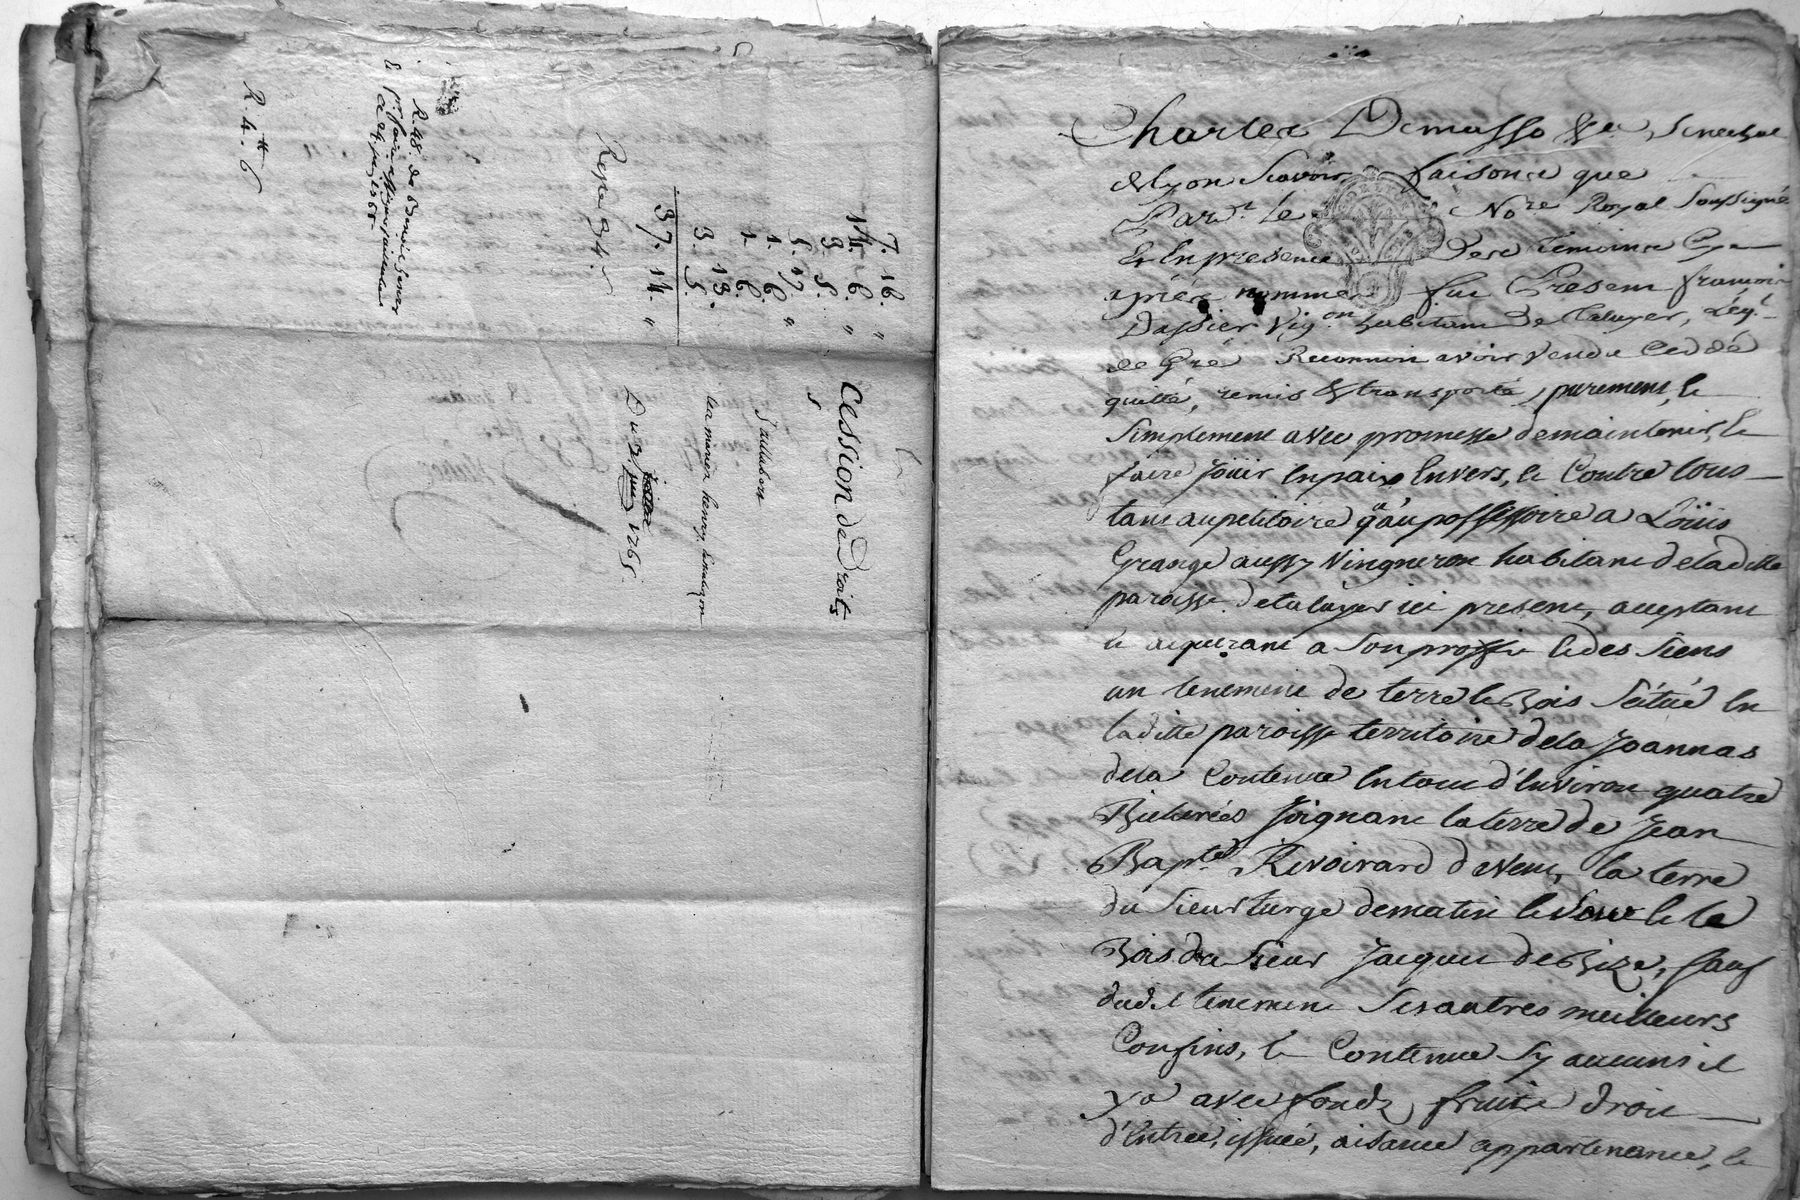 R. 4.tt 6
7. 16. "
14. 6. "
3. 5.
5. 17. "
1. 6.
1. 6.
3. 13.
3. 5.
37. 14. "
Cession de Droits
Jaillabert
Du 3 juin 1765
Charles Demasso &ca, Senechal
de Lyon Scavoir faisons que
Par.t le No.re Royal Soussigné
Et En presence Des temoins Cy
apres nommes fut Present françois
Dassier Vig.on habitant De Taluyer, Leq.l
de Gré Reconnoit avoir Vendu Ceddé
quitté, remis & transporté, purement, et
Simplement avec promesse de maintenir, et
faire Joüir En paix Envers, et Contre tous
tant au petitoire qu'au possessoire a Loüis
Grange aussy Vingneron habitant de la ditte
paroisse de taluyer ici present, acceptant
et aquerant a Son proffit et des Siens
un tenement de terre et Bois Scitué En
la ditte paroisse territoire de la Joannas
de la Contenue En tout d'Environ quatre
Bicherées Joignant la terre de Jean
Bapt.e Rivoirard de Vent, la terre
du Sieur turge de matin et Soir et le
Bois du Sieur Jacquet de Bize, Sauf
dud.t tenement Ses autres meilleurs
Confins, et Contenue Sy aucuns il
y a avec fonds, fruits droit
d'Entrée, issuë, aisance appartenance, et